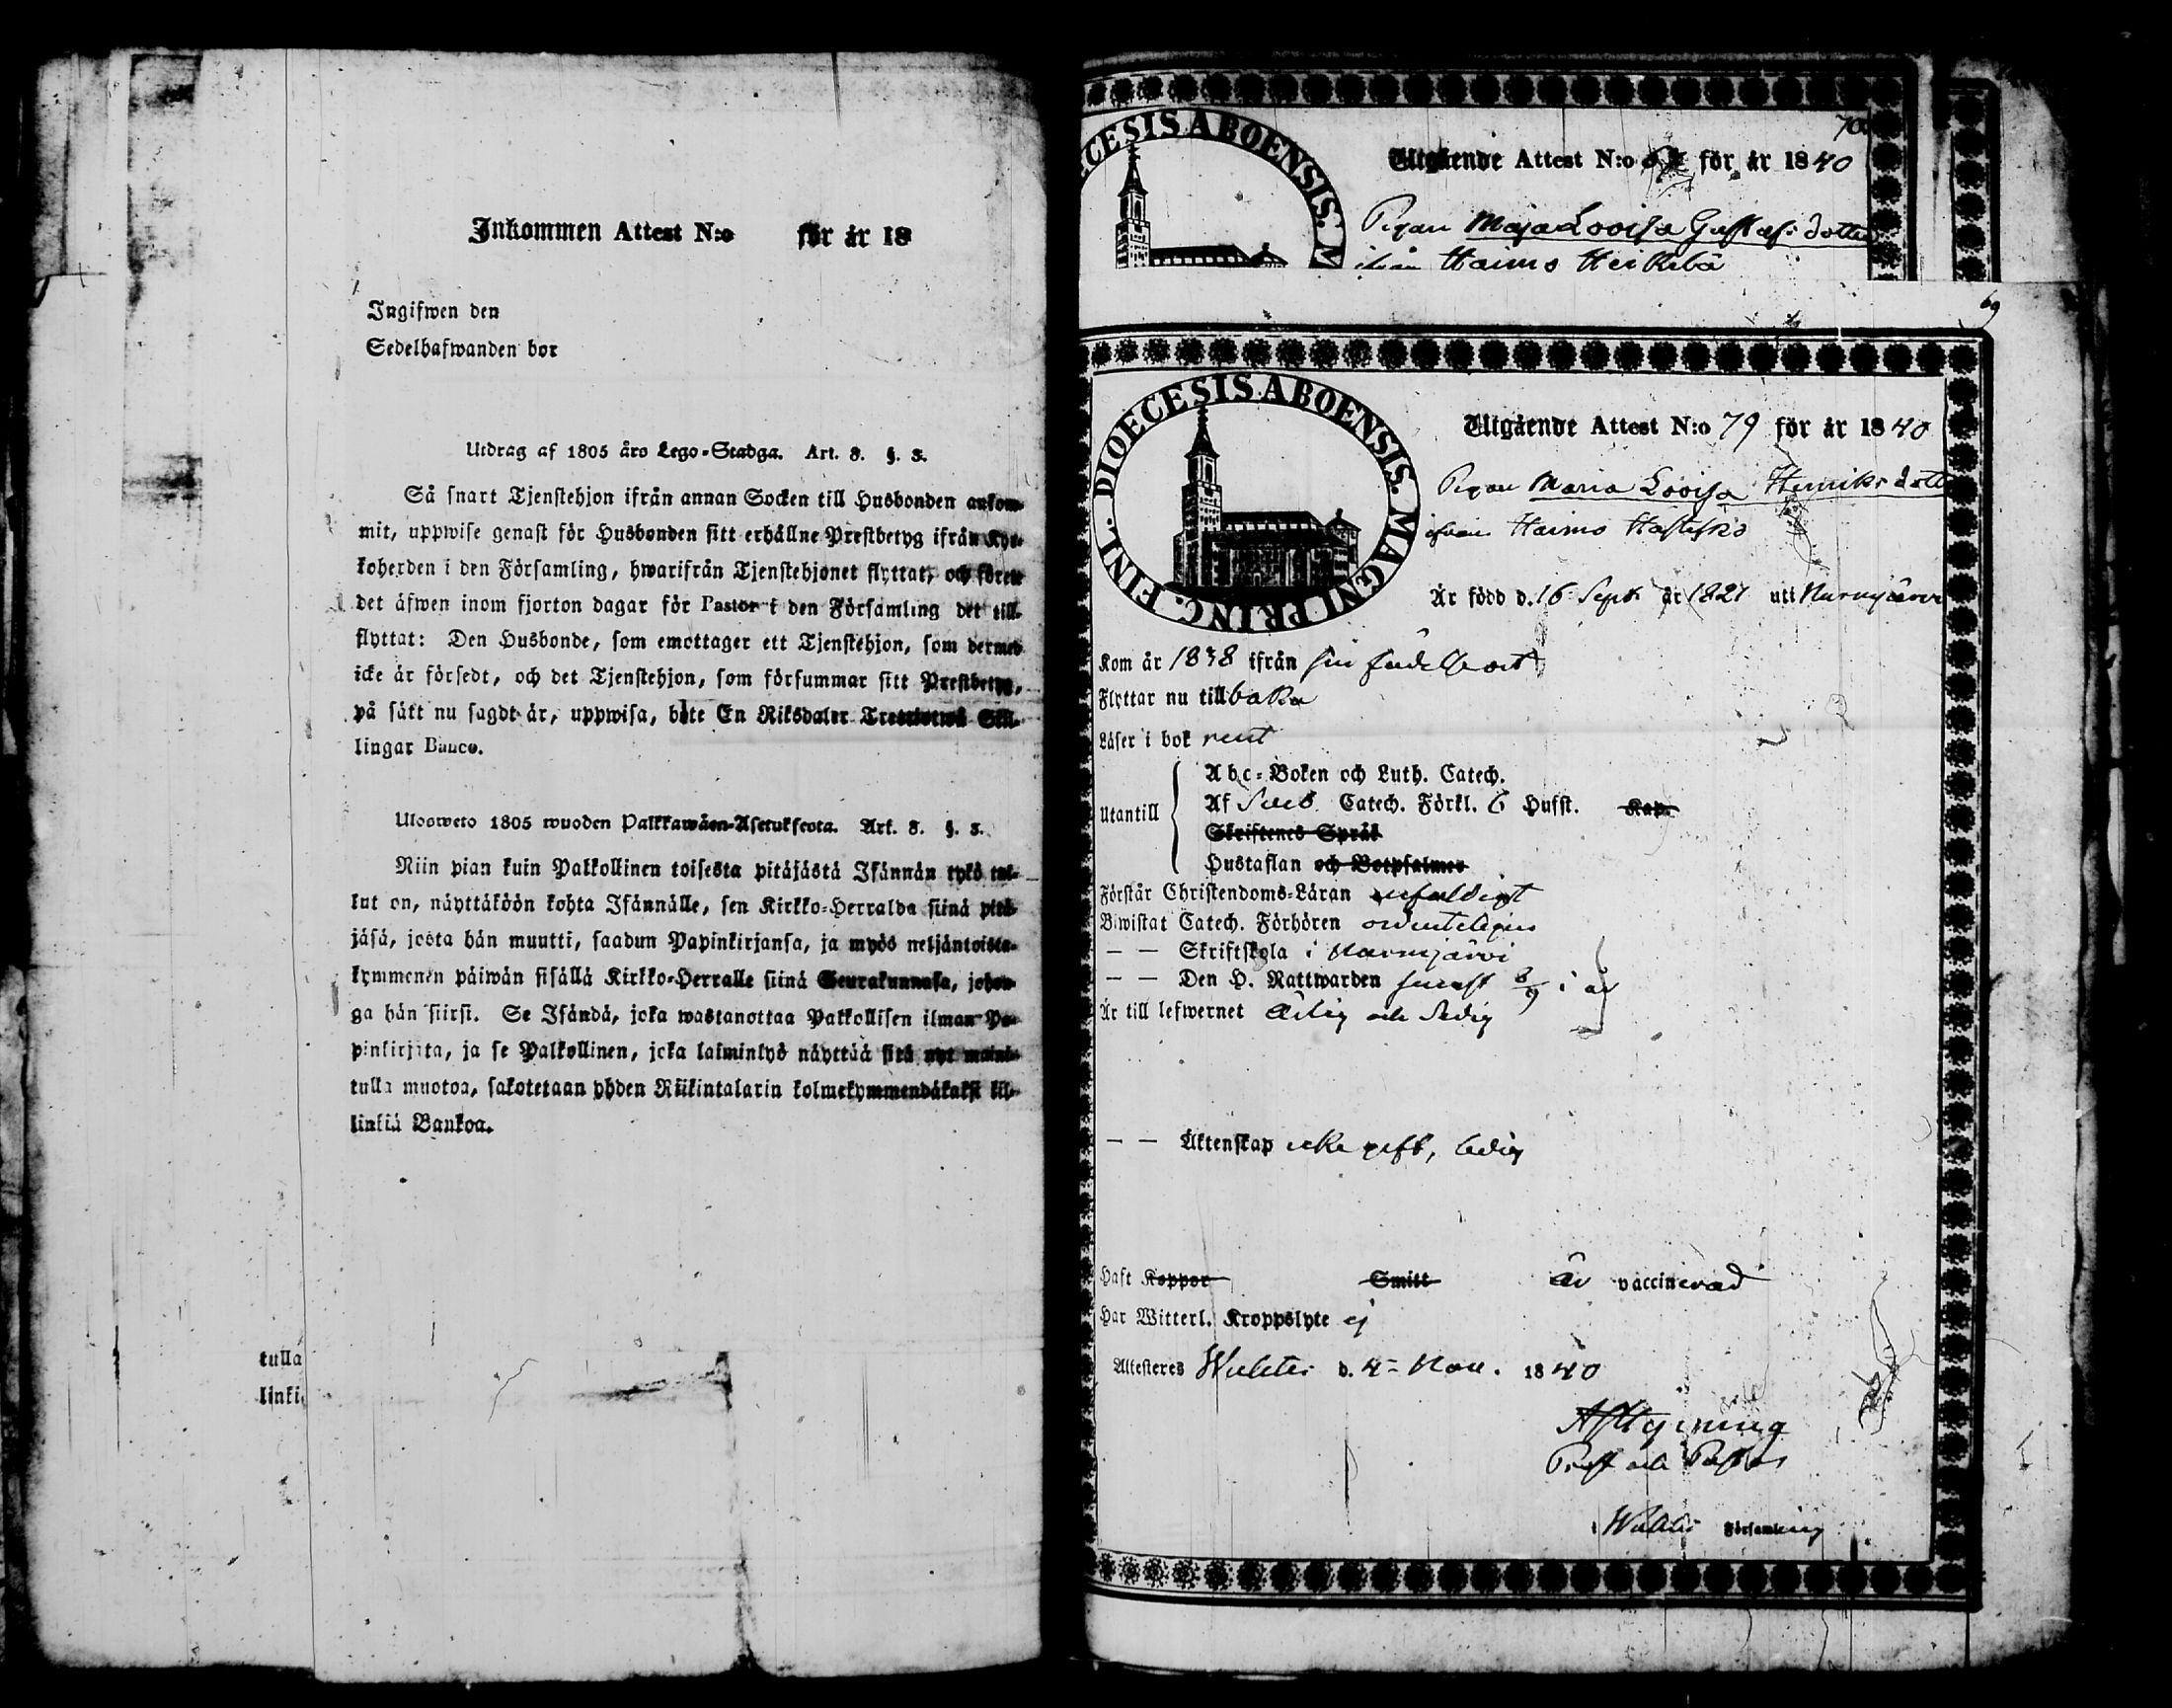 Inkommen Attest N:o för år 18
Ingifwen den
Sedelhafwanden bor
Utdrag af 1805 års Lego-Stadga. Art. 8. §. 3.
Så snart Tjenstehjon ifrån annan Socken till Husbonden ankom-
mit, uppwise genast för Husbonden sitt erhållne Prestbetyg ifrån Kyr-
koherden i den Församling, hwarifrån Tjenstehjonet flyttat, och förete
det äfwen inom fjorton dagar för Pastor i den Församling det till-
flyttat: Den Husbonde, som emottager ett Tjenstehjon, som dermed
icke är försedt, och det Tjenstehjon, som försummar sitt Prestbetyg,
på sätt nu sagdt är, uppwisa, böte En Riksdaler Trettiotwå Skil-
lingar Banco.
Ulosweto 1805 wuoden Palkkawäen-Asetuksesta. Art. 8. §. 3.
Niin pian kuin Palkollinen toisesta pitäjästä Isännän tykö tul-
lut on, näyttäköön kohta Isännälle, sen Kirkko-Herralda siinä pitä-
jäsä, josta hän muutti, saadun Papinkirjansa, ja myös neljäntoista-
kymmenen päiwän sisällä Kirkko-Herralle siinä Seurakunnasa, johon-
ga hän siirsi. Se Isändä, joka wastanottaa Palkollisen ilman Pa-
pinkirjita, ja se Palkollinen, joka laiminlyö näyttää sitä nyt maini-
tulla muotoa, sakotetaan yhden Riikintalarin kolmekymmendäkaksi kil-
linkiä Bankoa.
tulla
linki
70
DIOECESIS ABOENSIS. M
Utgående Attest N:o för år 1840
Pigan Maja Lovisa Gustafsdotter
ifrån Haimo Heikkilä
69
DIOECESIS ABOENSIS. MAGNI PRINC. FINL.
Utgående Attest N:o 79 för år 1840
Pigan Maria Lovisa Henriksdott
ifrån Haimo
Är född d. 16 Sept. år 1821 uti Nurmijärvi
Kom år 1838 ifrån sin födelseort
Flyttar nu tillbaka
Läser i bok rent
Utantill
Abc-Boken och Luth. Catech.
Af Sveb. Catech. Förkl. 6 Hufst. Kap.
Skriftenes Språk
Hustaflan och Botpsalmer
Förstår Christendoms-Läran enfaldigt
Biwistat Catech. Förhören ordenteligen
— — Skriftskola i Nurmijärvi
— — Den H. Nattwarden senast 6/9 i år
Är till lefwernet ärlig och sedig
— — Äktenskap icke gift, ledig
Haft Koppor Smitt är vaccinerad
Har Witterl. Kroppslyte ej
Attesteres Wichtis d. 4 Nov. 1840
Prost och Pastor
i Wichtis Församling